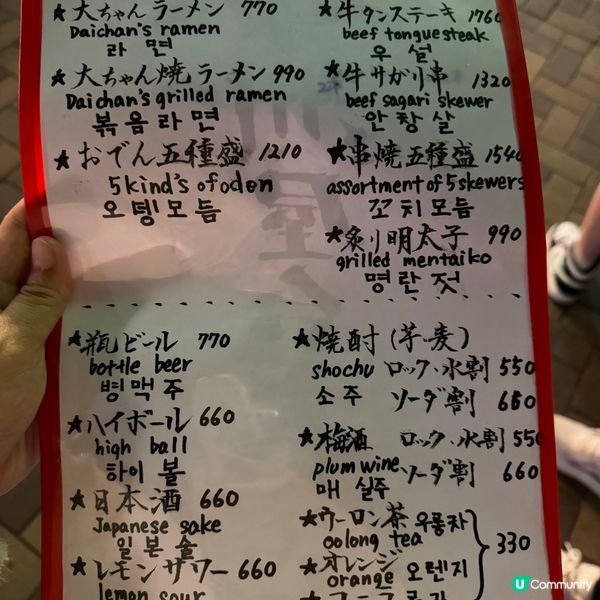 ★大ちゃんラーメン 770
Daichan's ramen
라면
★大ちゃん焼ラーメン 990
Daichan's grilled ramen
볶음라면
★おでん五種盛 1210
5kind's of odon
오뎅모듬
★牛タンステーキ 1760
beef tongue steak
우설
★牛サガリ串 1320
beef sagari skewer
안창살
★串焼五種盛 1540
assortment of 5 skewers
꼬치모듬
★炙り明太子 990
grilled mentaiko
명란젓
★瓶ビール 770
bottle beer
병맥주
★ハイボール 660
high ball
하이볼
★日本酒 660
Japanese sake
일본술
★レモンサワー 660
lemon sour
★焼酎(芋・麦)
shochu ロック・水割 550
소주 ソーダ割 660
★梅酒 ロック・水割 550
plum wine ソーダ割 660
매실주
★ウーロン茶 우롱차
oolong tea
330
★オレンジ 오렌지
orange
U Community